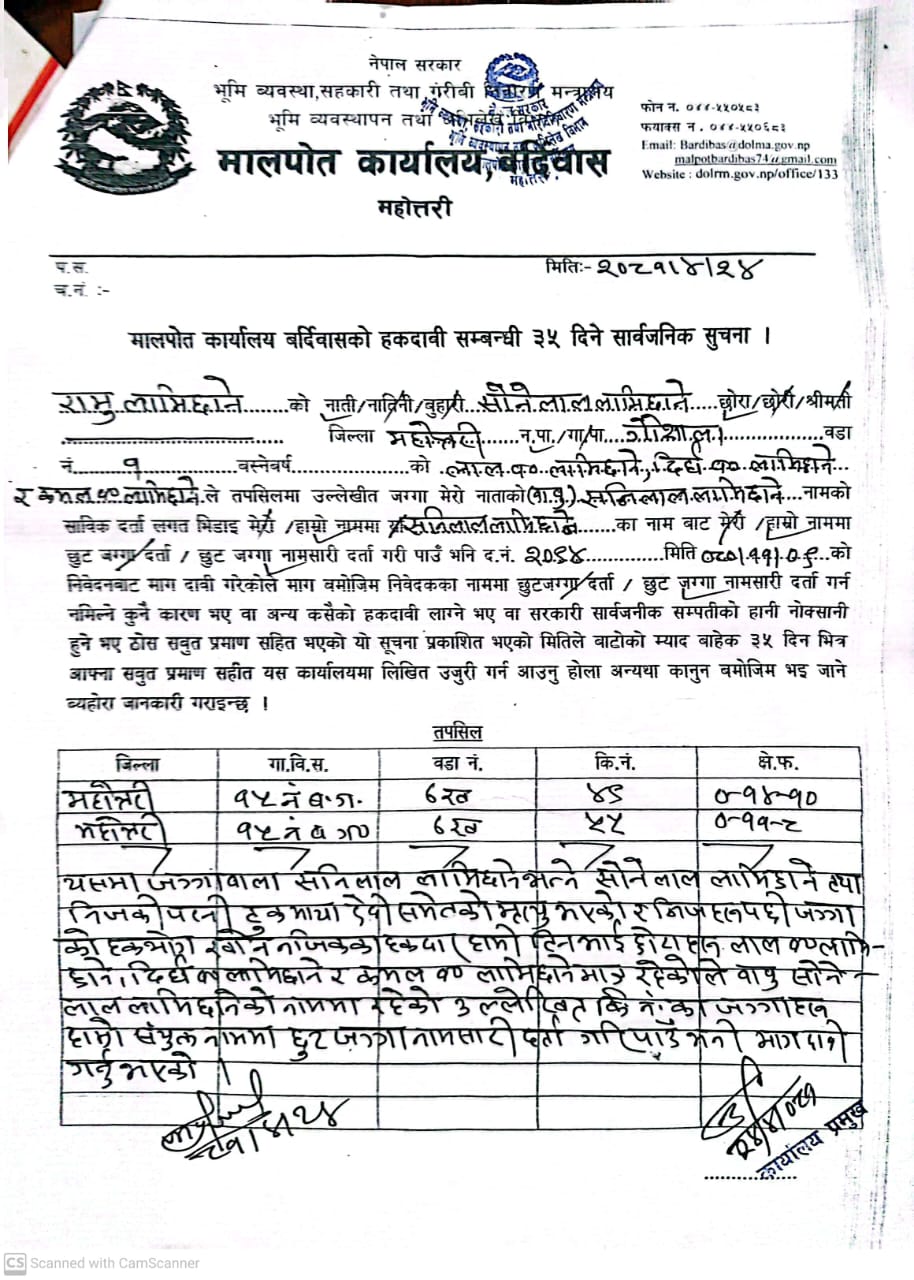 नेपाल सरकार
भूमि व्यवस्था,सहकारी तथा गरीवी निवारण मन्त्रालय
भूमि व्यवस्थापन तथा अभिलेख विभाग
मालपोत कार्यालय,बर्दिवास
महोत्तरी
फोन न. ०४४-५५०५८३
फयाक्स न . ०४४-५५०६८३
Email: Bardibas@dolma.gov.np
malpotbardibas74@gmail.com
Website : dolrm.gov.np/office/133
प.स.
मितिः- २०८१।४।२४
च.नं. :-
मालपोत कार्यालय बर्दिवासको हकदावी सम्बन्धी ३५ दिने सार्वजनिक सुचना ।
रामु लामिछाने.......को नाती/नातिनी/बुहारी...सोनेलाल लामिछाने...छोरा/छोरी/श्रीमती
जिल्ला महोत्तरी.....न.पा./गा/पा. गौशाला................वडा
नं....१............वस्नेवर्ष....................को लाल ब०.लामिछाने, दिर्घ ब०.लामिछाने...
र कमल ब० लामिछाने ले तपसिलमा उल्लेखीत जग्गा मेरो नाताको(बा.पु.) सनिलाल लामिछाने....नामको
साविक दर्ता लगत भिडाइ मेरो /हाम्रो नाममा सनिलाल लामिछाने.......का नाम बाट मेरो /हाम्रो नाममा
छुट जग्गा/दर्ता / छुट जग्गा नामसारी दर्ता गरी पाउँ भनि द.नं. २०९४............मिति ०८०।११।०९..को
निवेदनबाट माग दावी गरेकोले माग वमोजिम निवेदकका नाममा छुटजग्गा/दर्ता / छुट जग्गा नामसारी दर्ता गर्न
नमिल्ने कुनै कारण भए वा अन्य कसैको हकदावी लाग्ने भए वा सरकारी सार्वजनीक सम्पतीको हानी नोक्सानी
हुने भए ठोस सवुत प्रमाण सहित भएको यो सूचना प्रकाशित भएको मितिले वाटोको म्याद बाहेक ३५ दिन भित्र
आफ्ना सवुत प्रमाण सहीत यस कार्यालयमा लिखित उजुरी गर्न आउनु होला अन्यथा कानुन बमोजिम भइ जाने
व्यहोरा जानकारी गराइन्छ ।
तपसिल
जिल्ला गा.वि.स. वडा नं. कि.नं. क्षे.फ.
महोत्तरी १५ नं ब.ग. ६ख ४९ ०-१४-१०
महोत्तरी १५ नं ब ग० ६ख ५५ ०-११-८
यसमा जग्गावाला सनिलाल लामिछाने भन्ने सोनेलाल लामिछाने तथा
निजको पत्नी टुकमाया देवी समेतको मृत्यु भएको र निजहरु पछी जग्गा
को हकभोग नजिकका हकदार हामी तिन भाई छोराहरु लाल ब० लामि-
छाने, दिर्घ ब० लामिछाने र कमल ब० लामिछाने मात्र रहेकोले बाबु सोने-
लाल लामिछानेको नाममा रहेको उल्लेखित कि.नं. का जग्गाहरु
हाम्रो संयुक्त नाममा छुट जग्गा नामसारी दर्ता गरि पाउँ भनी माग दावी
गर्नु भएको ।
२४।४।०८१
कार्यालय प्रमुख
CS Scanned with CamScanner